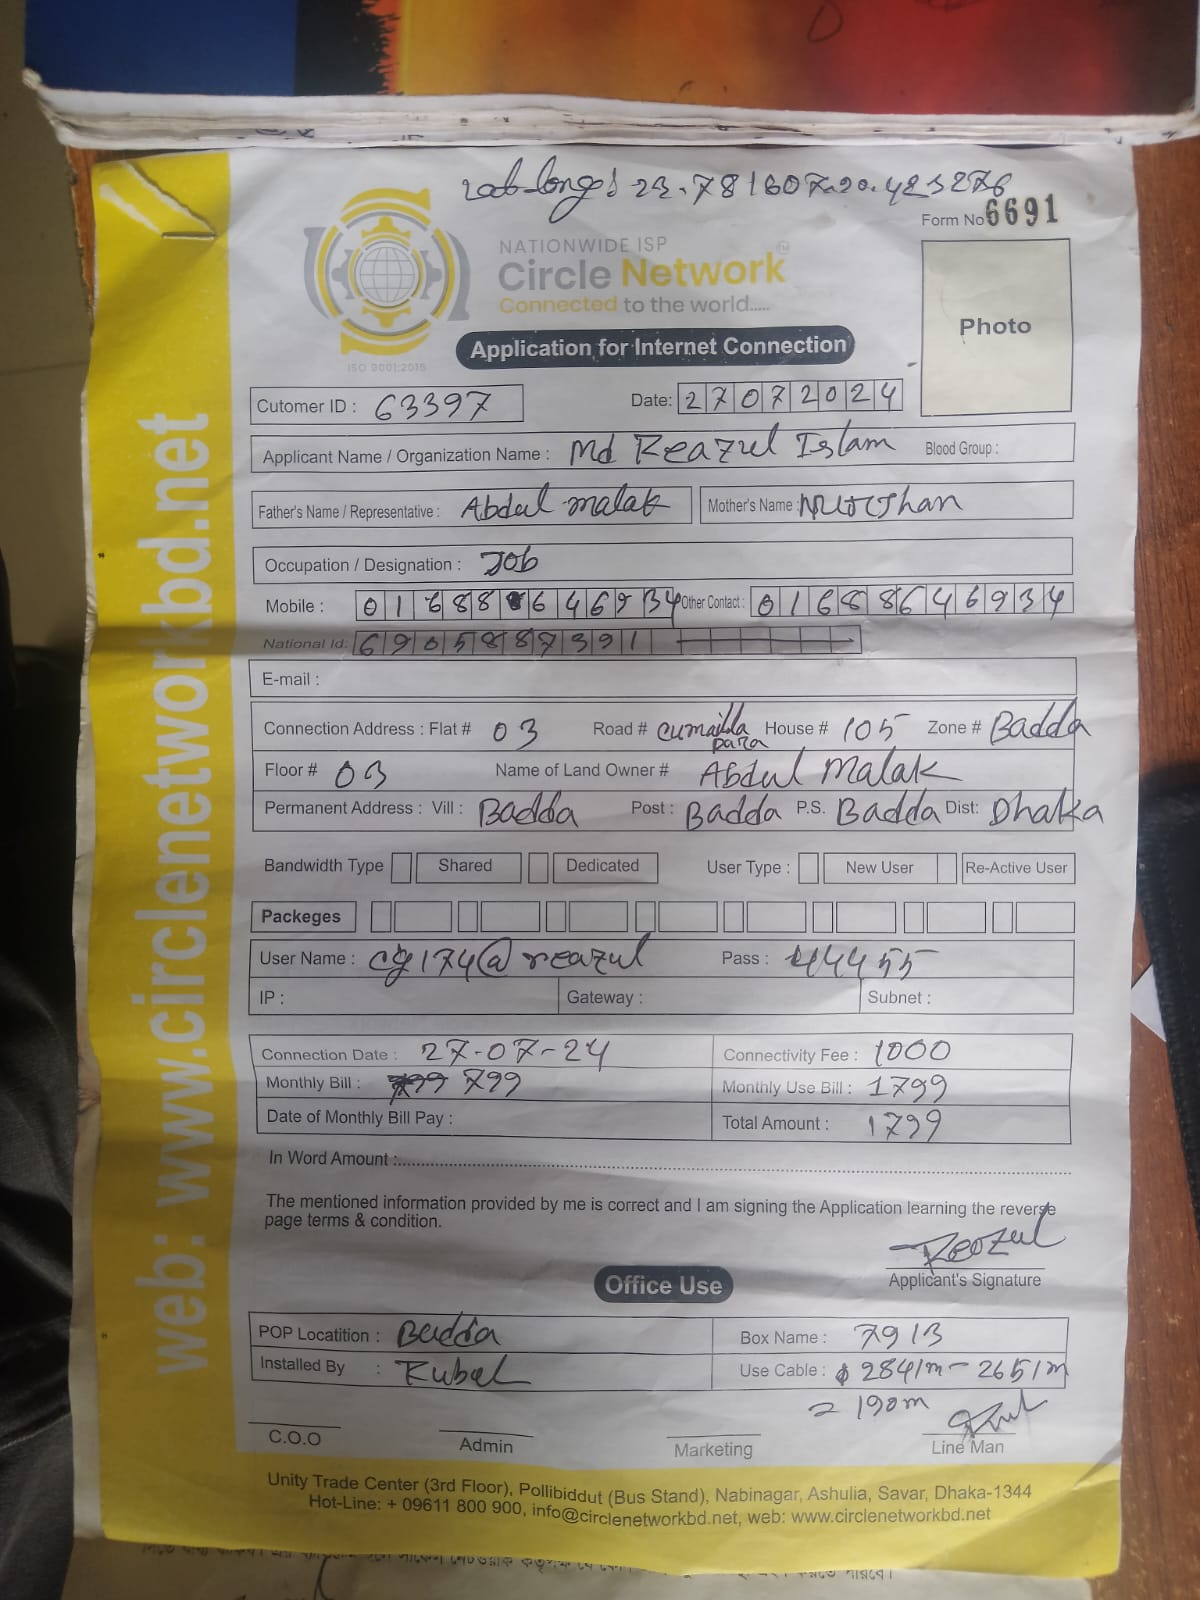 Form No 6691
NATIONWIDE ISP
Circle Network
Connected to the world.....
ISO 9001:2015
Application for Internet Connection
Photo
Cutomer ID : 63397 Date: 27072024
Applicant Name / Organization Name : Md Reazul Islam Blood Group :
Father's Name / Representative : Abdul malak Mother's Name :
Occupation / Designation : Job
Mobile : Other Contact : 01688646934
National Id: 6905887391
E-mail :
Connection Address : Flat # 03 Road # cumailla para House # 105 Zone # Badda
Floor # 03 Name of Land Owner # Abdul Malak
Permanent Address : Vill : Badda Post : Badda P.S. Badda Dist: Dhaka
Bandwidth Type Shared Dedicated User Type : New User Re-Active User
Packeges
User Name : cg174@reazul Pass : 44455
IP : Gateway : Subnet :
Connection Date : 27-07-24 Connectivity Fee : 1000
Monthly Bill : 799 Monthly Use Bill : 1799
Date of Monthly Bill Pay : Total Amount : 1799
In Word Amount :
The mentioned information provided by me is correct and I am signing the Application learning the reverse
page terms & condition.
Reazul
Applicant's Signature
Office Use
POP Locatition : Badda Box Name :
Installed By : Rubel Use Cable : 2841m - 2651m
= 190m
C.O.O Admin Marketing Line Man
Unity Trade Center (3rd Floor), Pollibiddut (Bus Stand), Nabinagar, Ashulia, Savar, Dhaka-1344
Hot-Line: + 09611 800 900, info@circlenetworkbd.net, web: www.circlenetworkbd.net
web: www.circlenetworkbd.net